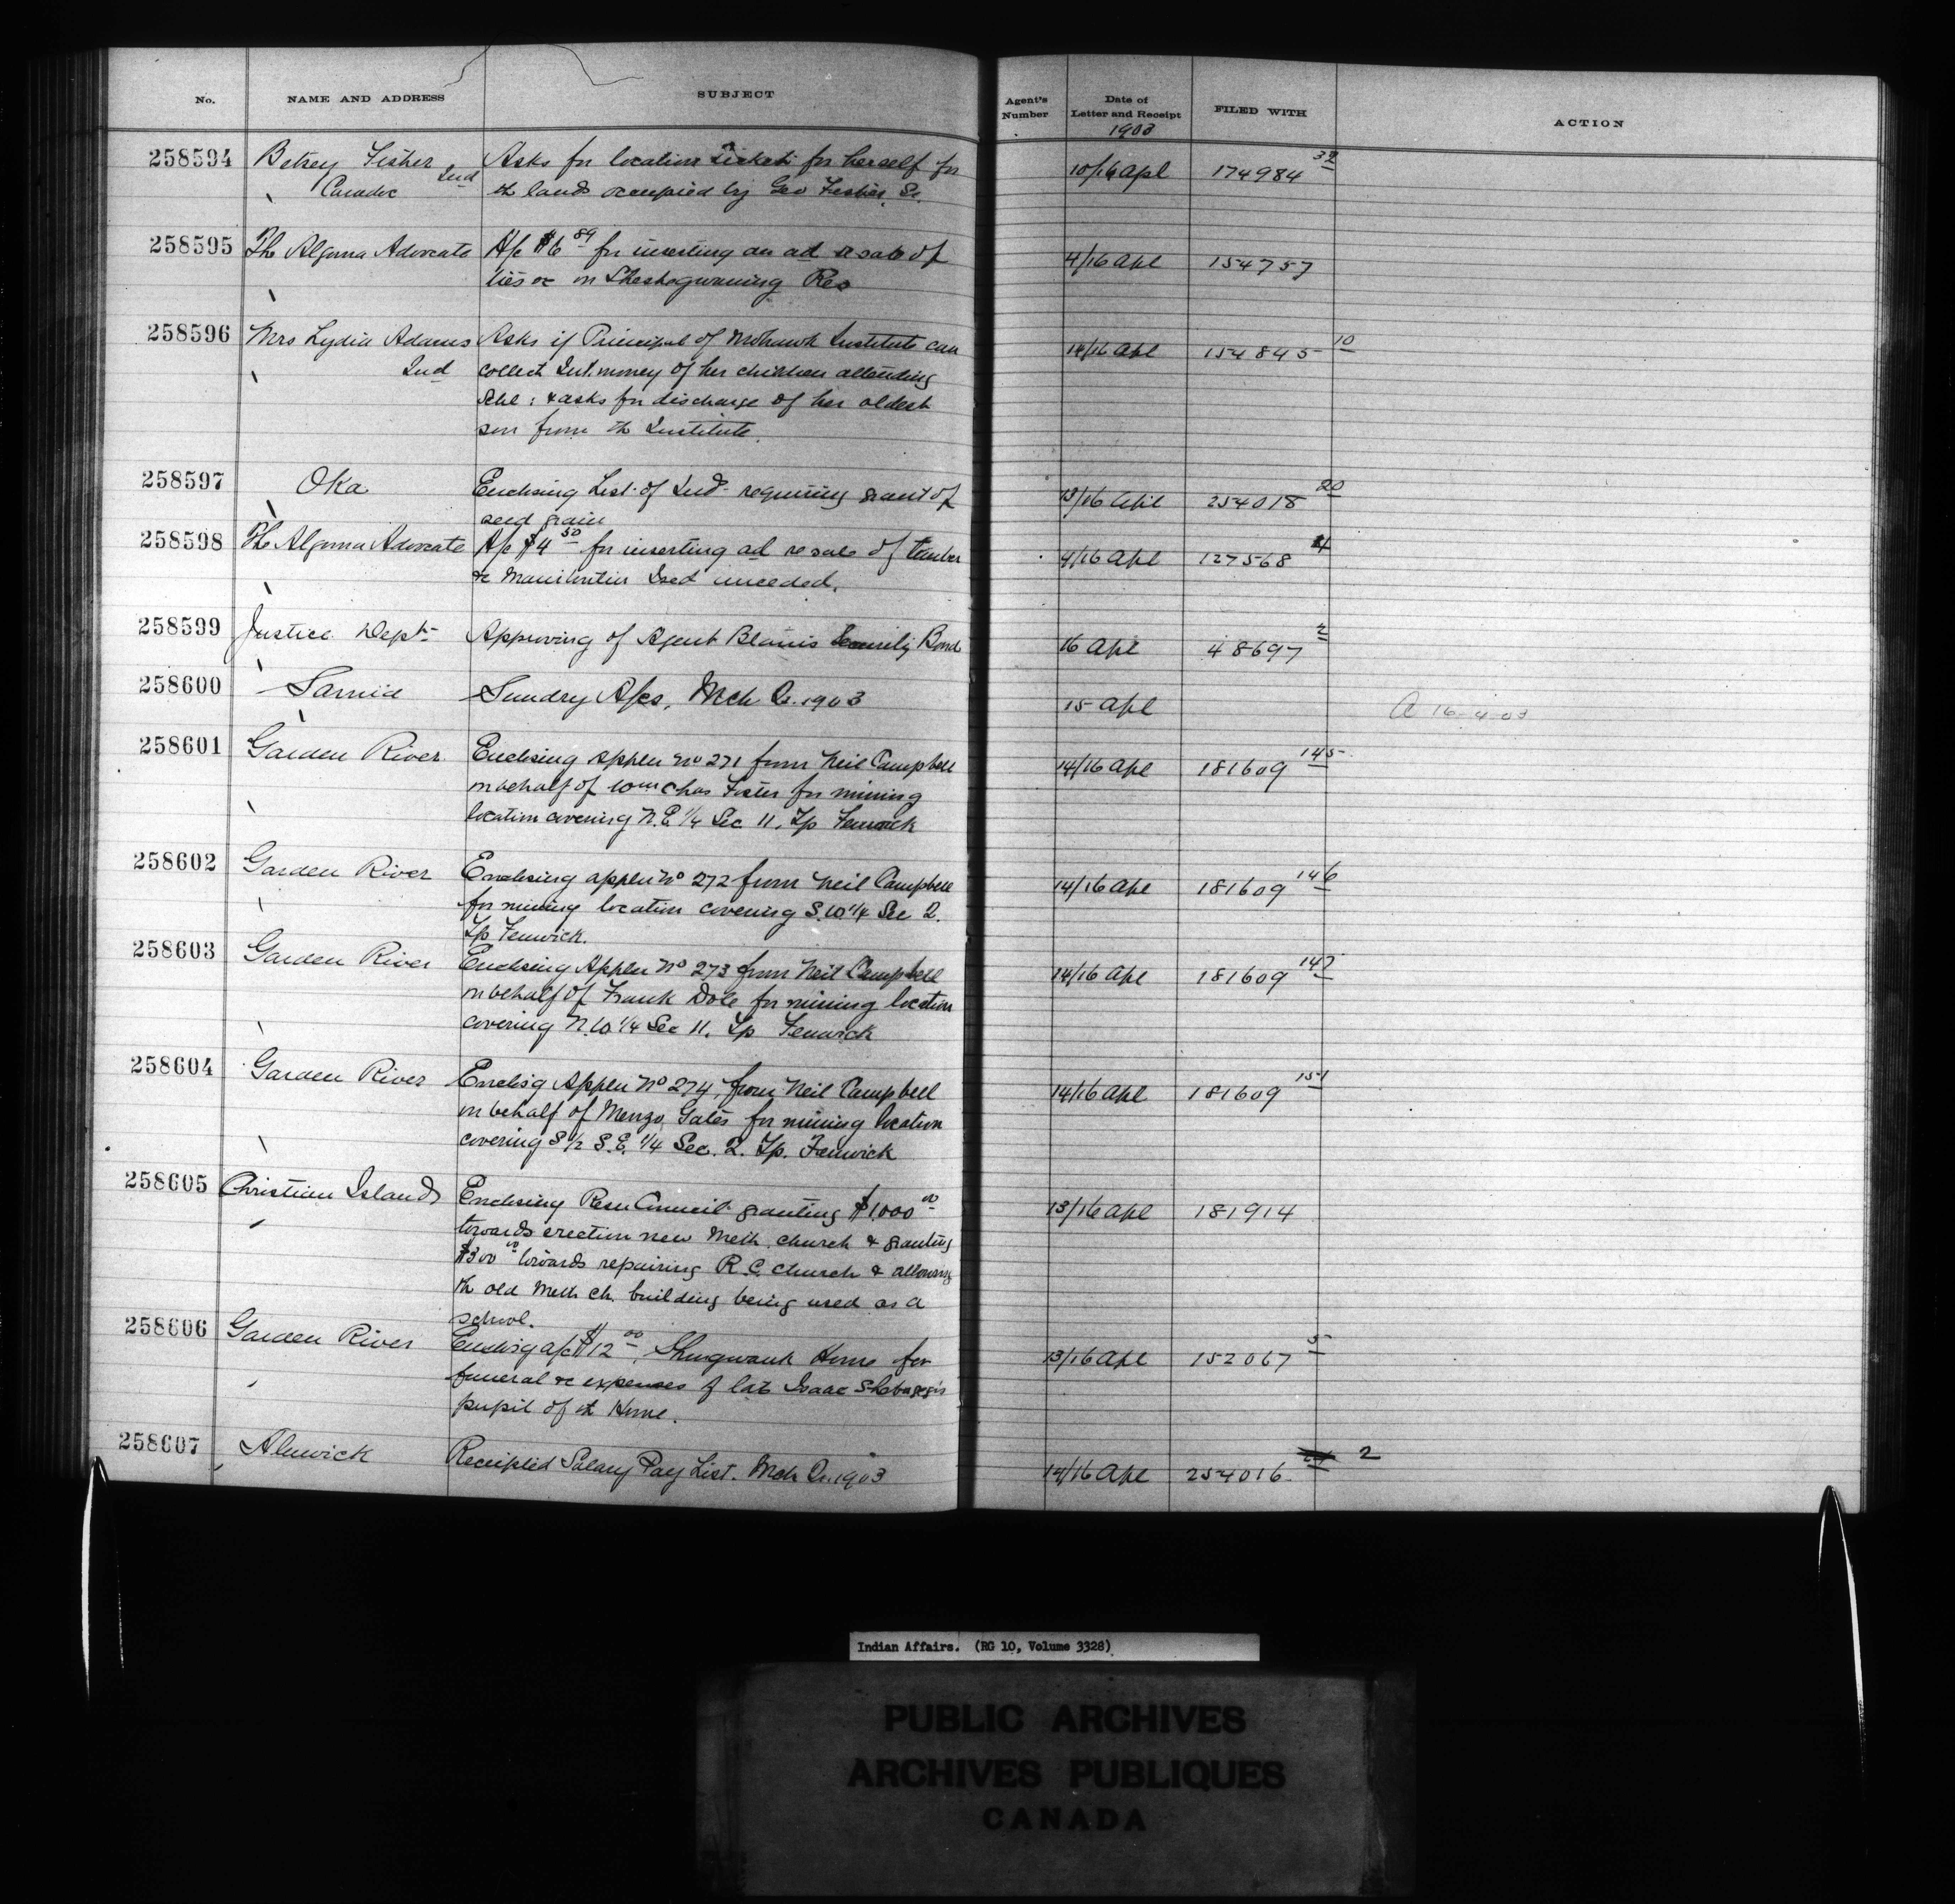 No. NAME AND ADDRESS SUBJECT Agent's Number Date of Letter and Receipt FILED WITH ACTION
1903
258594 Betsey Fisher Ind Asks for location ticket for herself for 10/16 Apl 174984 39
Caradoc th lands occupied by Geo Fisher, Sr.
258595 Th Algoma Advocate A/c $6 89 for inserting an ad re sale of 4/16 Apl 154757
ties &c on Sheshegwaning Res
258596 Mrs Lydia Adams Asks if Principal of Mohawk Institute can 14/16 Apl 154845 10
Ind collect Int. money of her children attending
Schl: & asks for discharge of her oldest
son from th Institute.
258597 Oka Enclosing List of Inds requiring grant of 13/16 Apl 254018 20
seed grain
258598 Th Algoma Advocate A/c $4 50 for inserting ad re sale of timber 4/16 Apl 127568 4
&c Manitoulin Isld unceded.
258599 Justice Dept Approving of Agent Blain's Security Bond 16 Apl 48697 2
258600 Sarnia Sundry A/cs, Mch Qr. 1903 15 Apl A 16 4 03
258601 Garden River Enclosing Appln No 271 from Neil Campbell 14/16 Apl 181609 145
on behalf of Wm Chas Foster for mining
location covering N.E. 1/4 Sec 11, Tp Fenwick
258602 Garden River Enclosing appln No 272 from Neil Campbell 14/16 Apl 181609 146
for mining location covering S.W. 1/4 Sec 2.
Tp Fenwick.
258603 Garden River Enclosing Appln No 273 from Neil Campbell 14/16 Apl 181609 147
on behalf of Frank Dole for mining location
covering N.W. 1/4 Sec 11. Tp Fenwick
258604 Garden River Enclos'g Appln No 274, from Neil Campbell 14/16 Apl 181609 151
on behalf of Menzo Gates for mining location
covering S 1/2 S.E. 1/4 Sec. 2. Tp. Fenwick
258605 Christian Islands Enclosing Resn Council granting $1000 00 13/16 Apl 181914
towards erection new Meth. church & granting
$300 00 towards repairing R.C. church & allowing
th old Meth ch. building being used as a
school.
258606 Garden River Enclos'g a/c $12 00, Shingwauk Home for 13/16 Apl 152067 5
funeral &c expenses of late Isaac
pupil of th Home.
258607 Alnwick Receipted Salary Pay List. Mch Qr. 1903 14/16 Apl 254016 2
Indian Affairs. (RG 10, Volume 3328)
PUBLIC ARCHIVES
ARCHIVES PUBLIQUES
CANADA